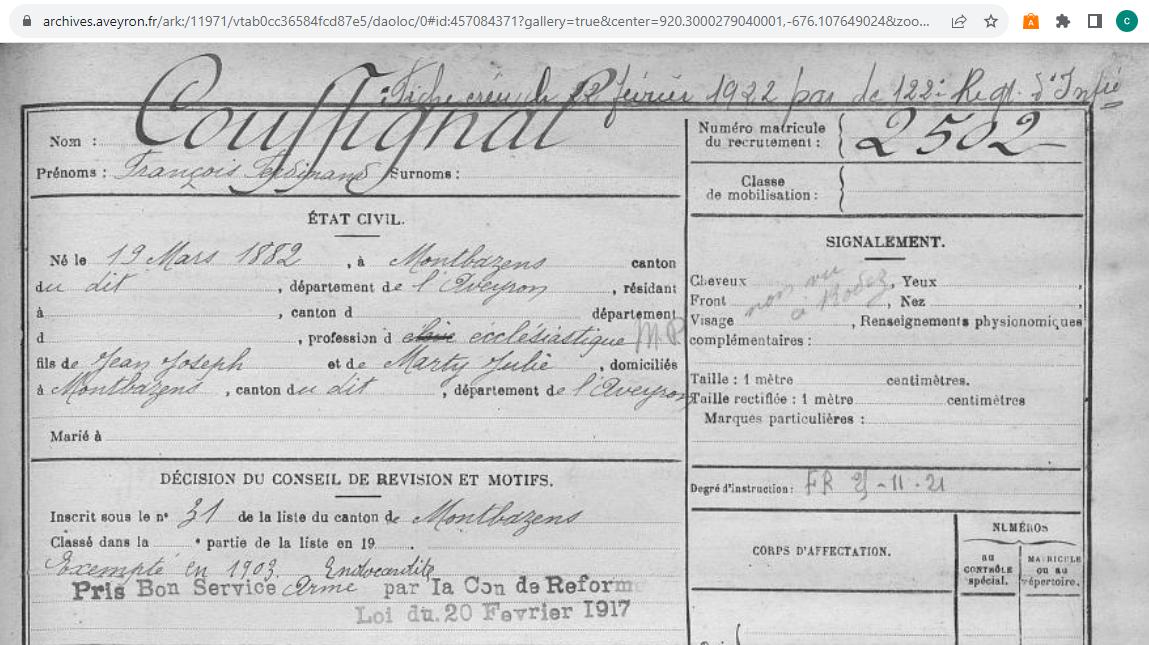 archives.aveyron.fr/ark:/11971/vtab0cc36584fcd87e5/daoloc/0#id:457084371?gallery=true&center=920.3000279040001,-676.107649024&zoo...
C
Fiche créée le 22 février 1922 par le 122e Regt. d'Infie
Nom : Coussignal
Prénoms : François Ferdinand Surnoms :
Numéro matricule du recrutement : 2502
Classe de mobilisation :
ÉTAT CIVIL.
Né le 19 Mars 1882, à Montbazens canton
du dit, département de l'Aveyron, résidant
à, canton d département
d, profession d ecclésiastique M.P.
fils de Jean Joseph et de Marty Julie, domiciliés
à Montbazens, canton du dit, département de l'Aveyron
Marié à
SIGNALEMENT.
Cheveux, Yeux,
Front, Nez,
non vu à Rodez
Visage, Renseignements physionomiques
complémentaires :
Taille : 1 mètre centimètres.
Taille rectifiée : 1 mètre centimètres
Marques particulières :
Degré d'instruction : FR -11-21
DÉCISION DU CONSEIL DE REVISION ET MOTIFS.
Inscrit sous le n° 31 de la liste du canton de Montbazens
Classé dans la e partie de la liste en 19.
Exempté en 1903. Endocardite
Pris Bon Service Armé par la Con de Reforme
Loi du 20 Fevrier 1917
CORPS D'AFFECTATION.
NUMÉROS
au CONTRÔLE spécial.
MATRICULE ou au répertoire.